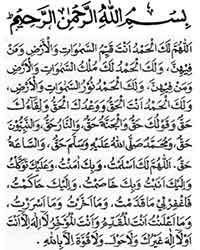 بِسْمِ اللهِ الرَّحْمٰنِ الرَّحِيْمِ
اَللّٰهُمَّ لَكَ الْحَمْدُ اَنْتَ قَيِّمُ السَّمٰوَاتِ وَالْاَرْضِ وَمَنْ
فِيْهِنَّ، وَلَكَ الْحَمْدُ لَكَ مُلْكُ السَّمٰوَاتِ وَالْاَرْضِ
وَمَنْ فِيْهِنَّ، وَلَكَ الْحَمْدُ اَنْتَ نُوْرُ السَّمٰوَاتِ وَالْاَرْضِ،
وَلَكَ الْحَمْدُ اَنْتَ الْحَقُّ وَوَعْدُكَ الْحَقُّ وَلِقَاءُكَ
حَقٌّ وَقَوْلُكَ حَقٌّ وَالْجَنَّةُ حَقٌّ، وَالنَّارُ حَقٌّ، وَالنَّبِيُّوْنَ
حَقٌّ، وَمُحَمَّدٌ صَلَّى اللهُ عَلَيْهِ وَسَلَّمَ حَقٌّ، وَالسَّاعَةُ
حَقٌّ، اَللّٰهُمَّ لَكَ اَسْلَمْتُ، وَبِكَ اٰمَنْتُ، وَعَلَيْكَ تَوَكَّلْتُ
وَاِلَيْكَ اَنَبْتُ وَبِكَ خَاصَمْتُ، وَاِلَيْكَ حَاكَمْتُ،
فَاغْفِرْلِيْ مَا قَدَّمْتُ، وَمَا اَخَّرْتُ وَمَا اَسْرَرْتُ،
وَمَا اَعْلَنْتُ اَنْتَ الْمُقَدِّمُ وَاَنْتَ الْمُؤَخِّرُ لَا اِلٰهَ اِلَّا اَنْتَ
اَوْ لَا اِلٰهَ غَيْرُكَ وَلَا حَوْلَ وَلَا قُوَّةَ اِلَّا بِاللهِ.